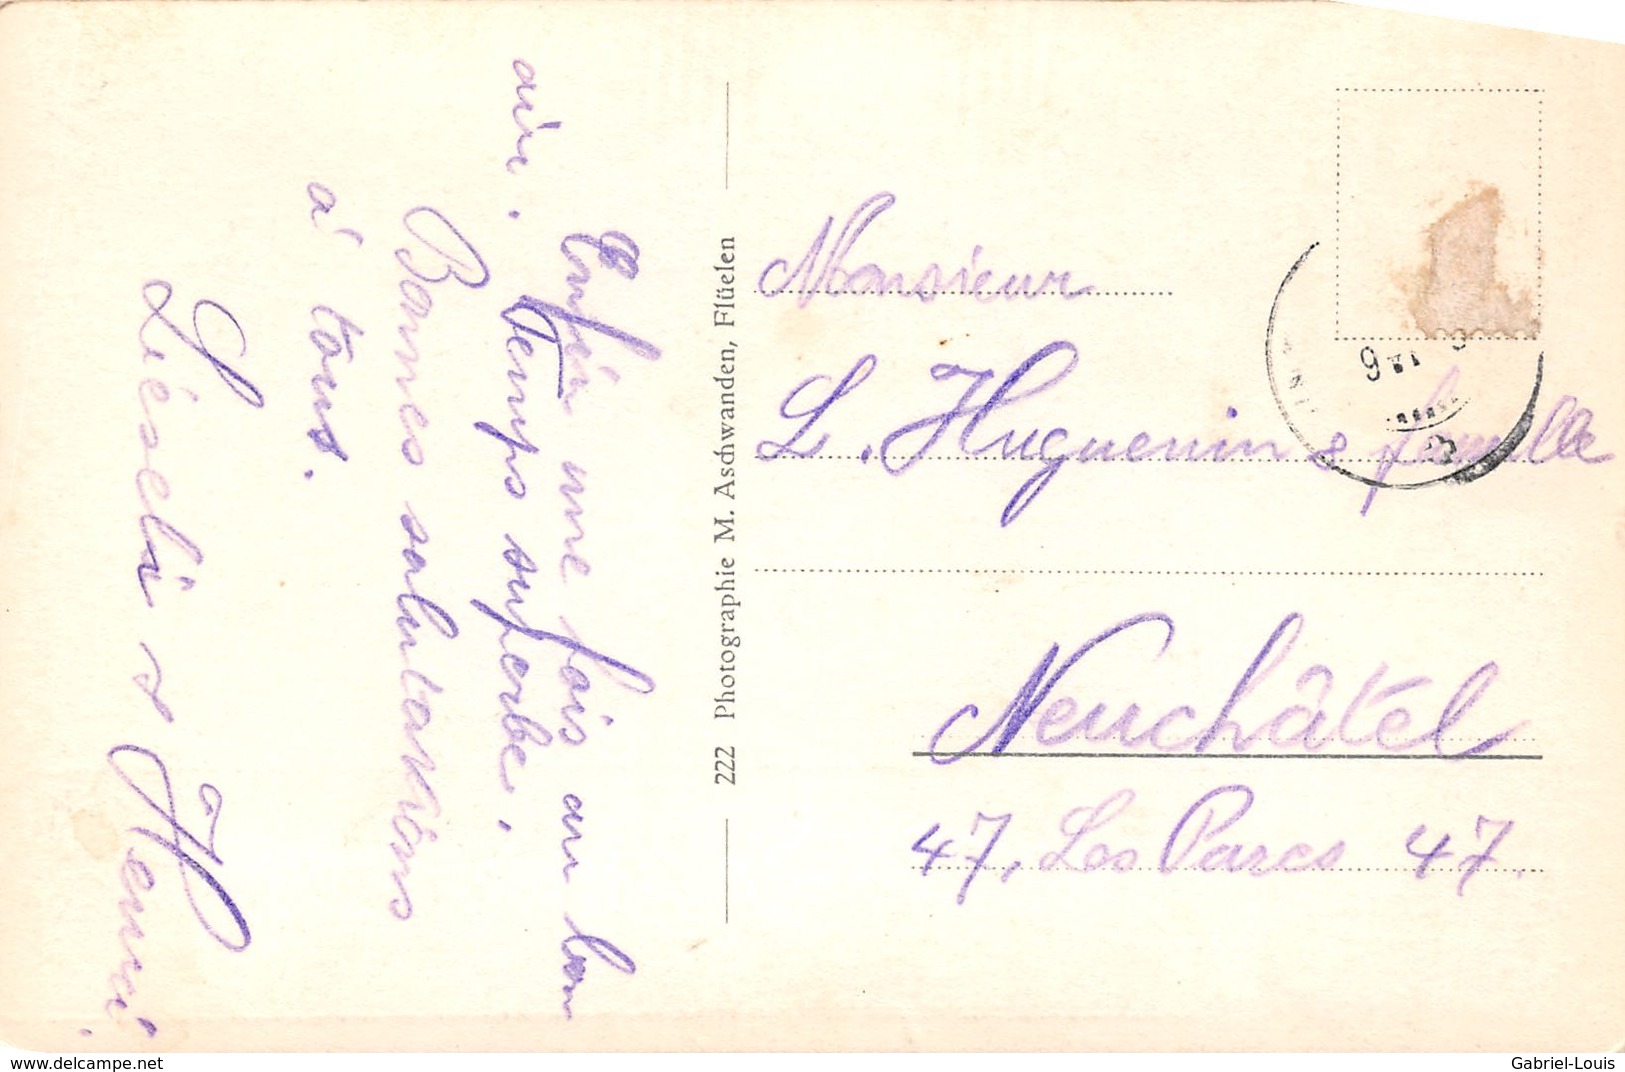 Enfin une fois au bon
air. Temps superbe.
Bonnes salutations
à tous.
Liéseli & Henri.
222 Photographie M. Aschwanden, Flüelen
Monsieur
L. Huguenin & famille
Neuchâtel
47, Les Parcs 47.
9 VI
delcampe.net
Gabriel-Louis